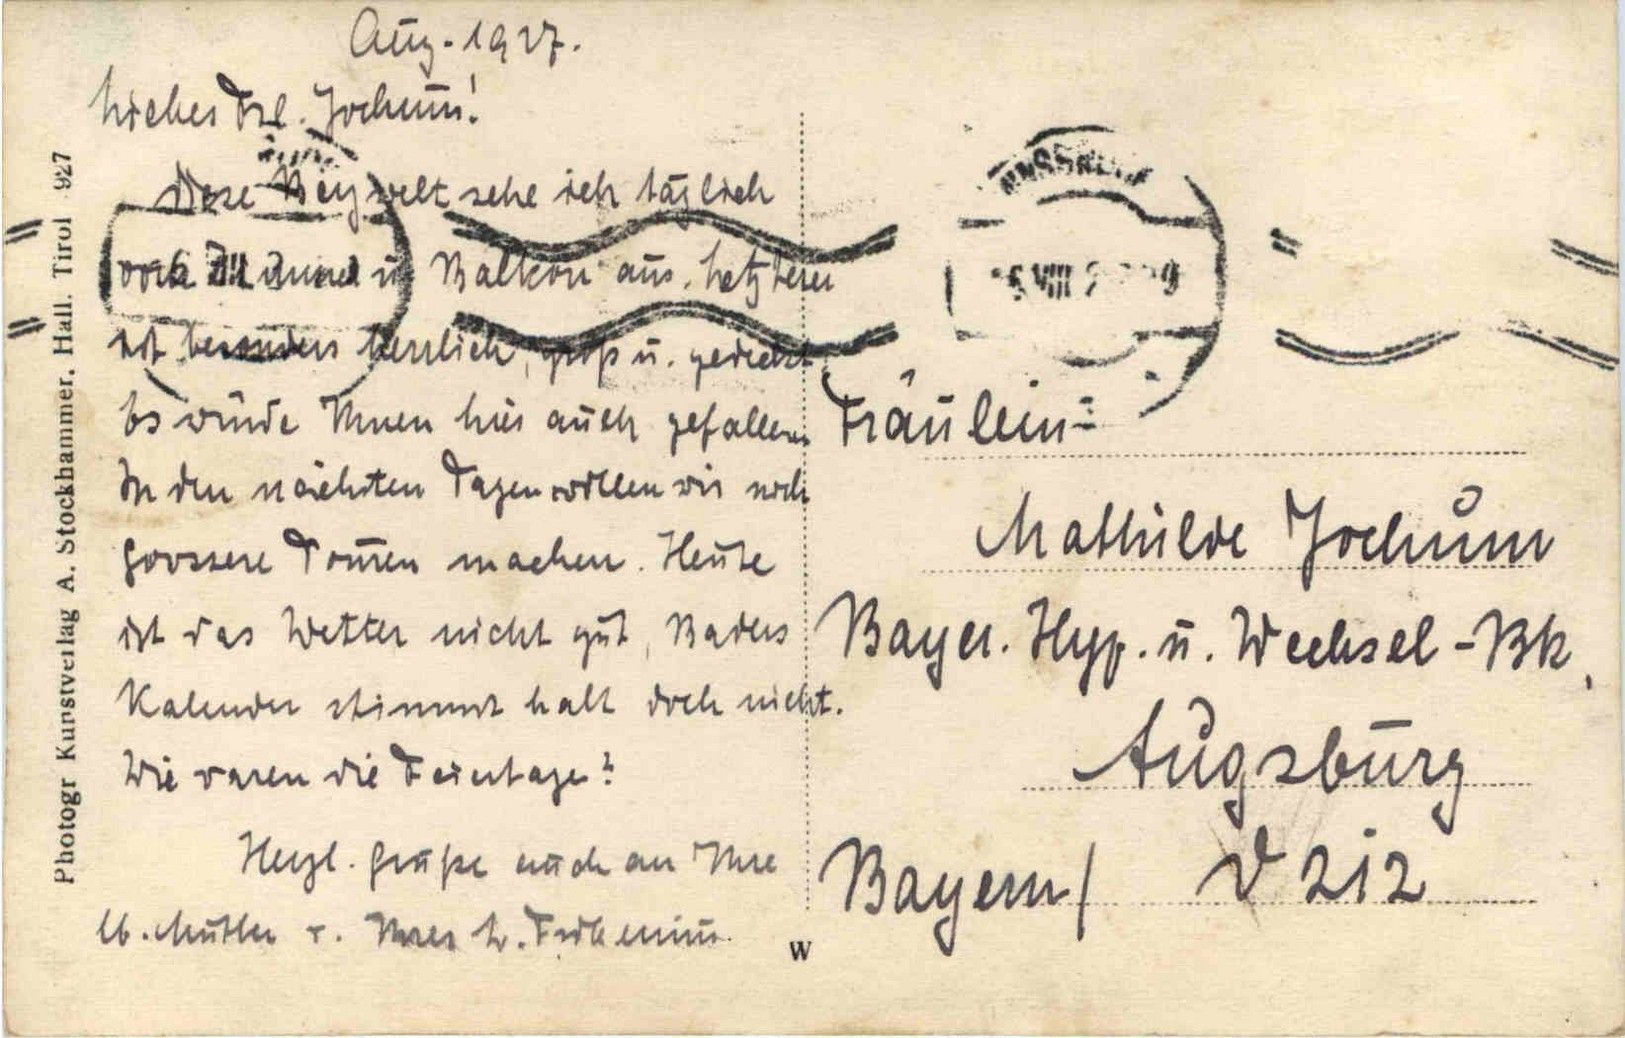 Aug. 1927.
Liebes Frl. Jochum!
Diese Bergwelt sehe ich täglich
vom Zimmer u. Balkon aus. Letzterer
ist besonders herrlich, groß u. gedeckt.
Es würde Ihnen hier auch gefallen.
In den nächsten Tagen wollen wir noch
grossere Touren machen. Heute
ist das Wetter nicht gut, Baders
Kalender stimmt halt doch nicht.
Wie waren die Feiertage?
Herzl. Grüße auch an Ihre
lb. Mutter v. Ihrer
Photogr Kunstverlag A. Stockhammer, Hall. Tirol 927
W
INNSBRUCK
VIII
Fräulein
Mathilde Jochum
Bayer. Hyp. u. Wechsel-Bk.
Augsburg
Bayern/ D 212